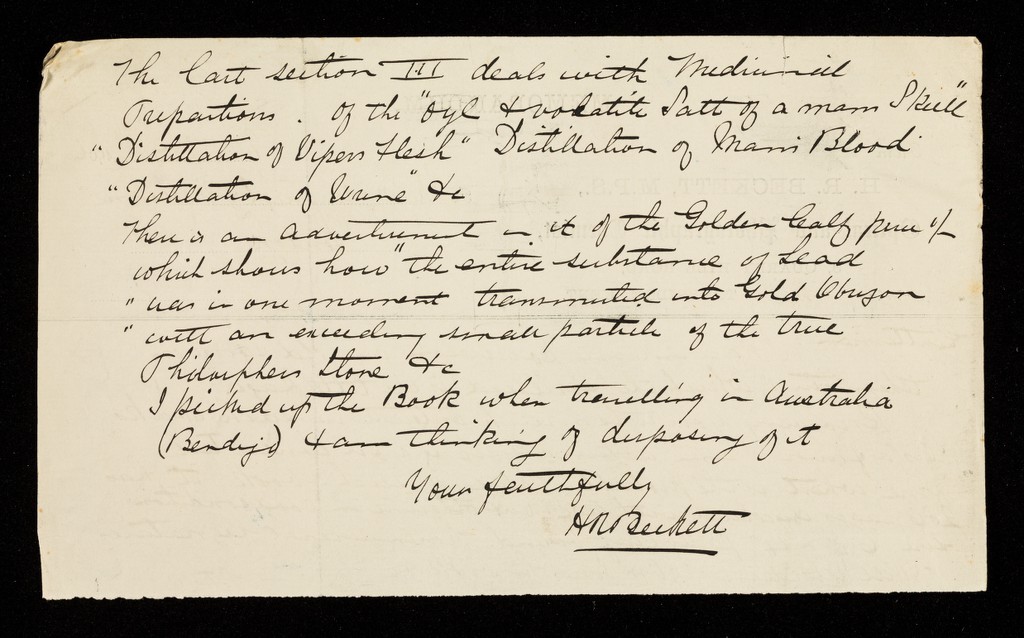 The last section III deals with Medicinal
Preparations. Of the "Oyl & volatile Salt of a mans Skull"
"Distillation of Vipers Flesh" Distillation of Mans Blood
"Distillation of Urine" &c
There is an advertisement in it of the Golden Calf price 1/-
which shows how "the entire substance of Lead
" was in one moment transmuted into Gold Obrizon
" with an exceeding small particle of the true
Philosphers Stone &c
I picked up the Book when travelling in Australia
(Bendigo) & am thinking of disposing of it
Yours faithfully
H R Beckett
H. R. BECKETT, M.P.S.,